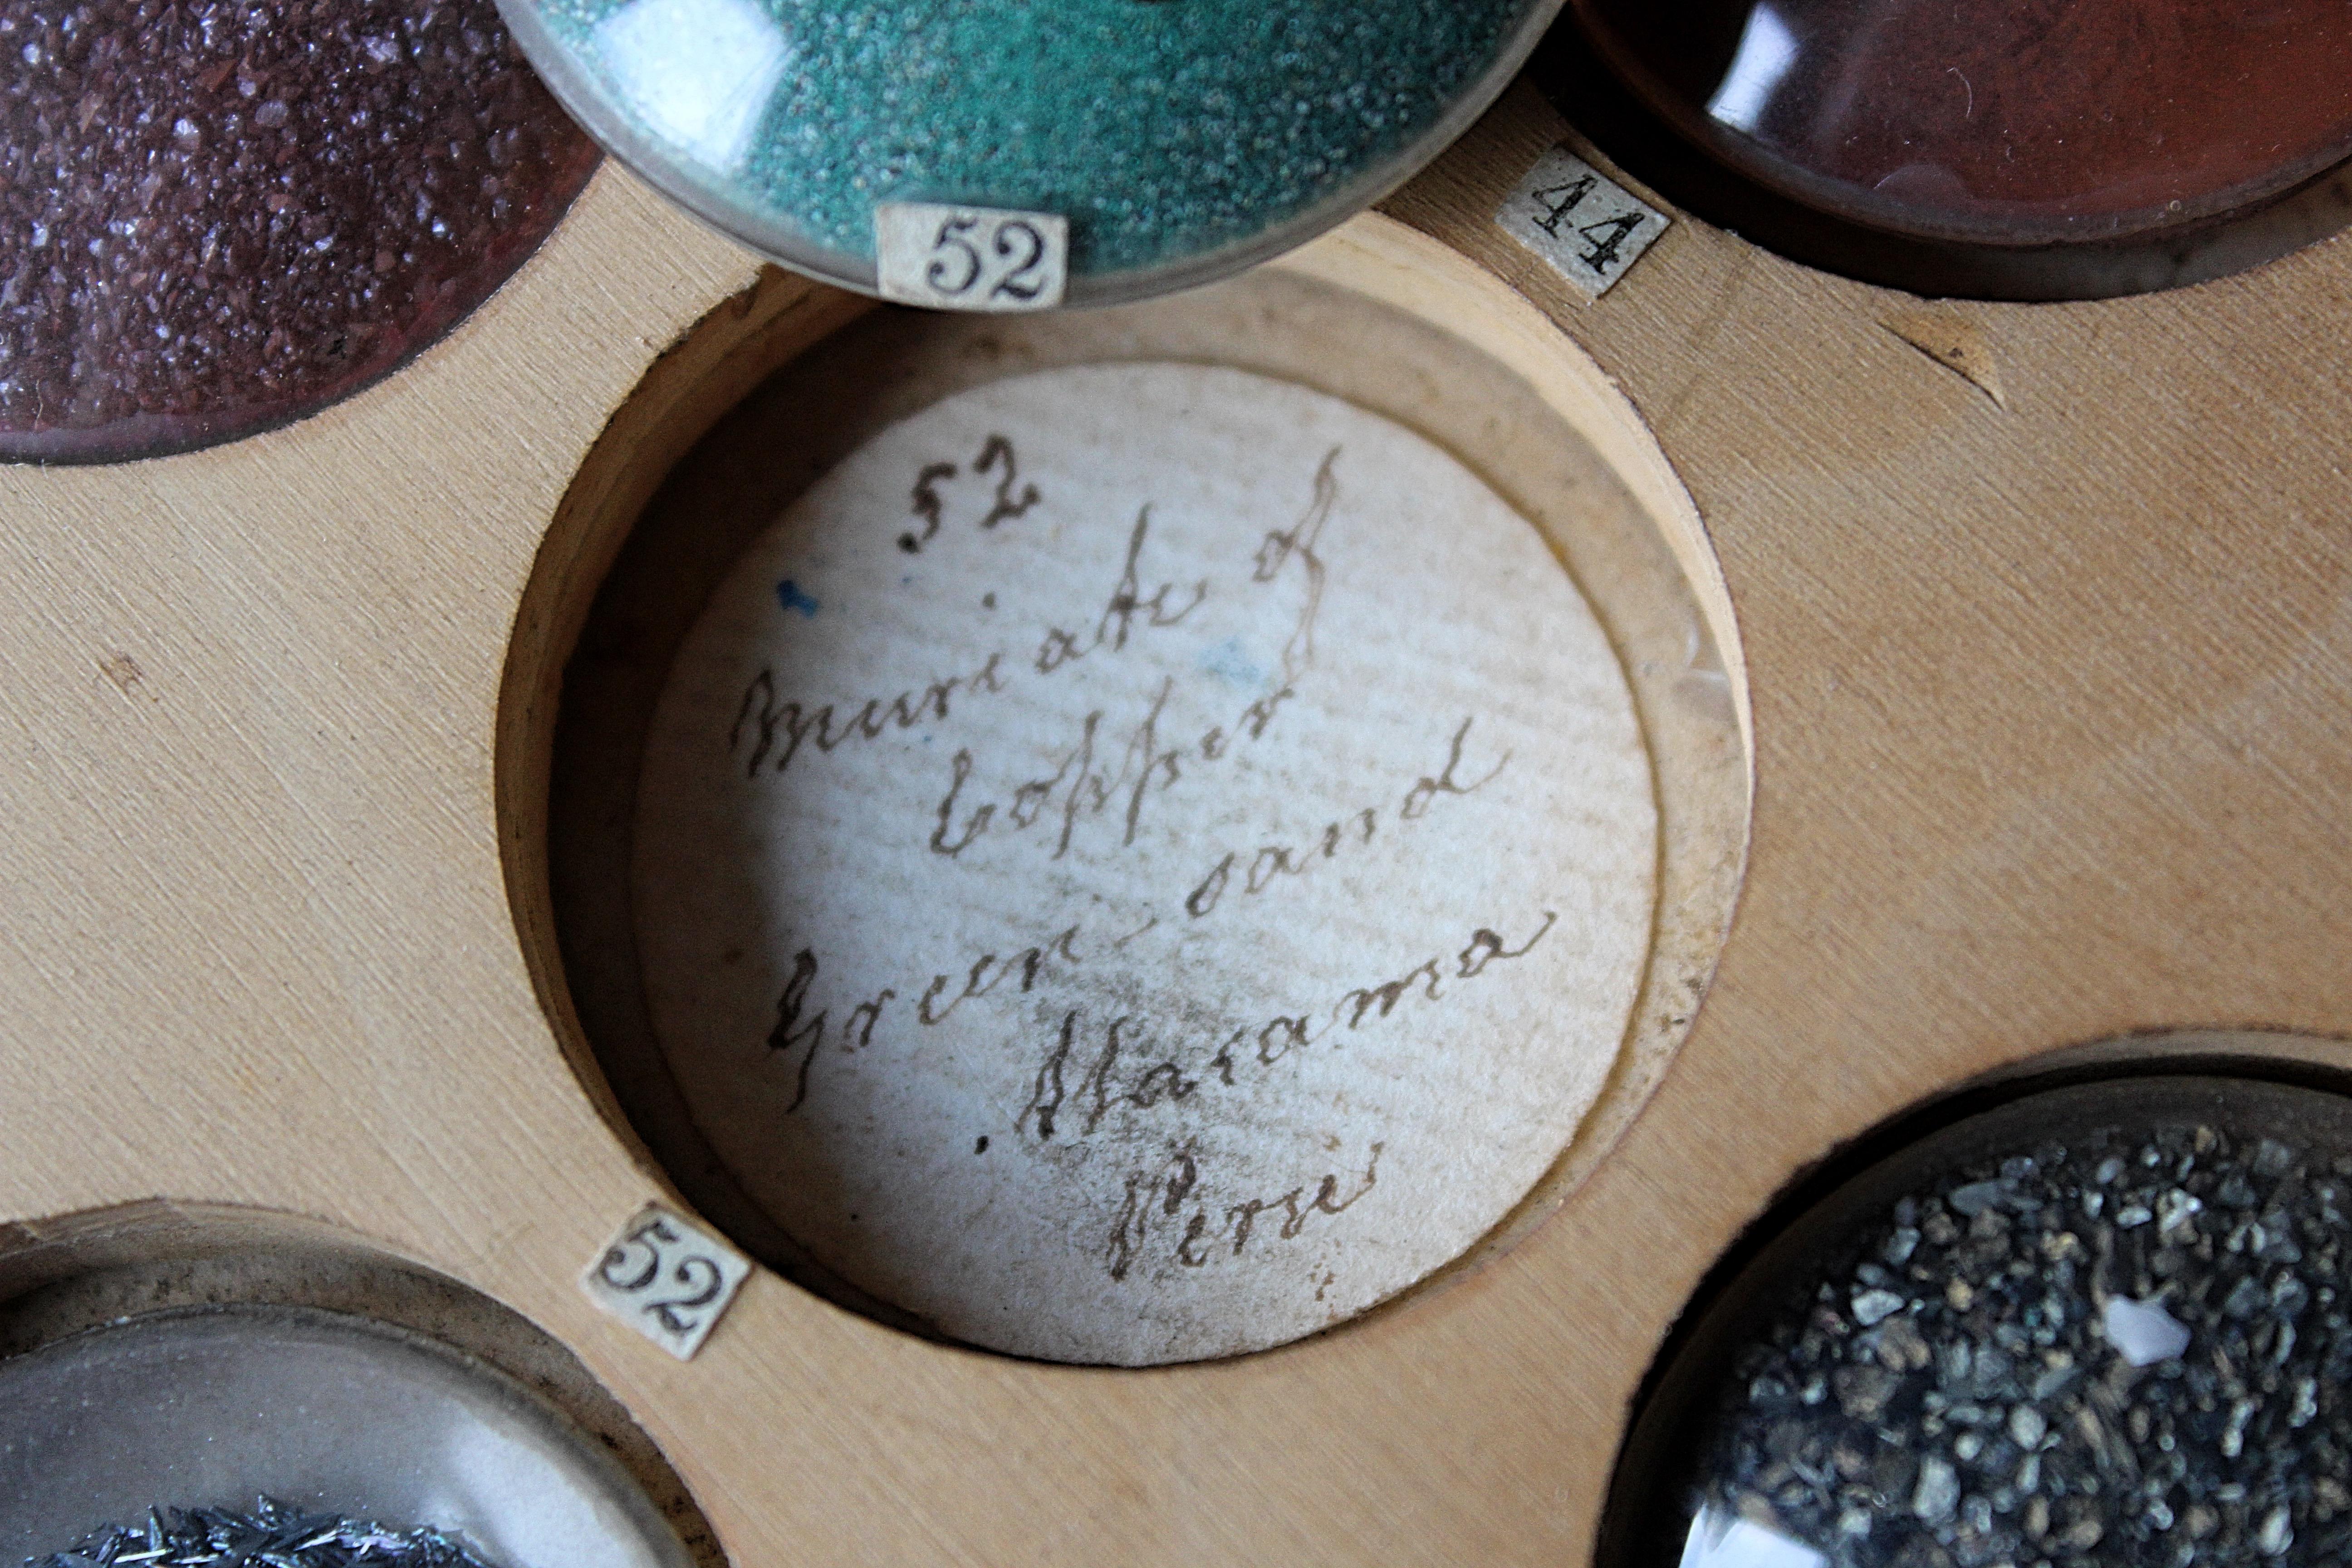 52
44
52
Muriate of
Copper
Green sand
Atacama
Peru
52